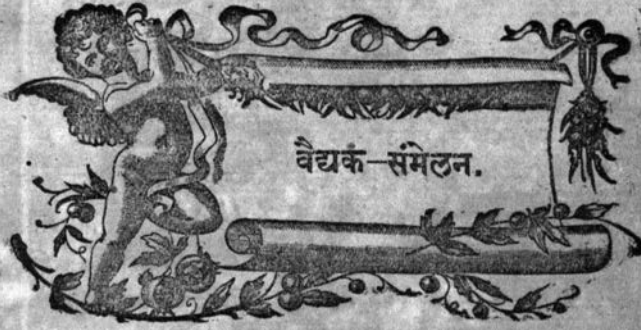 वैद्यक–संमेलन.